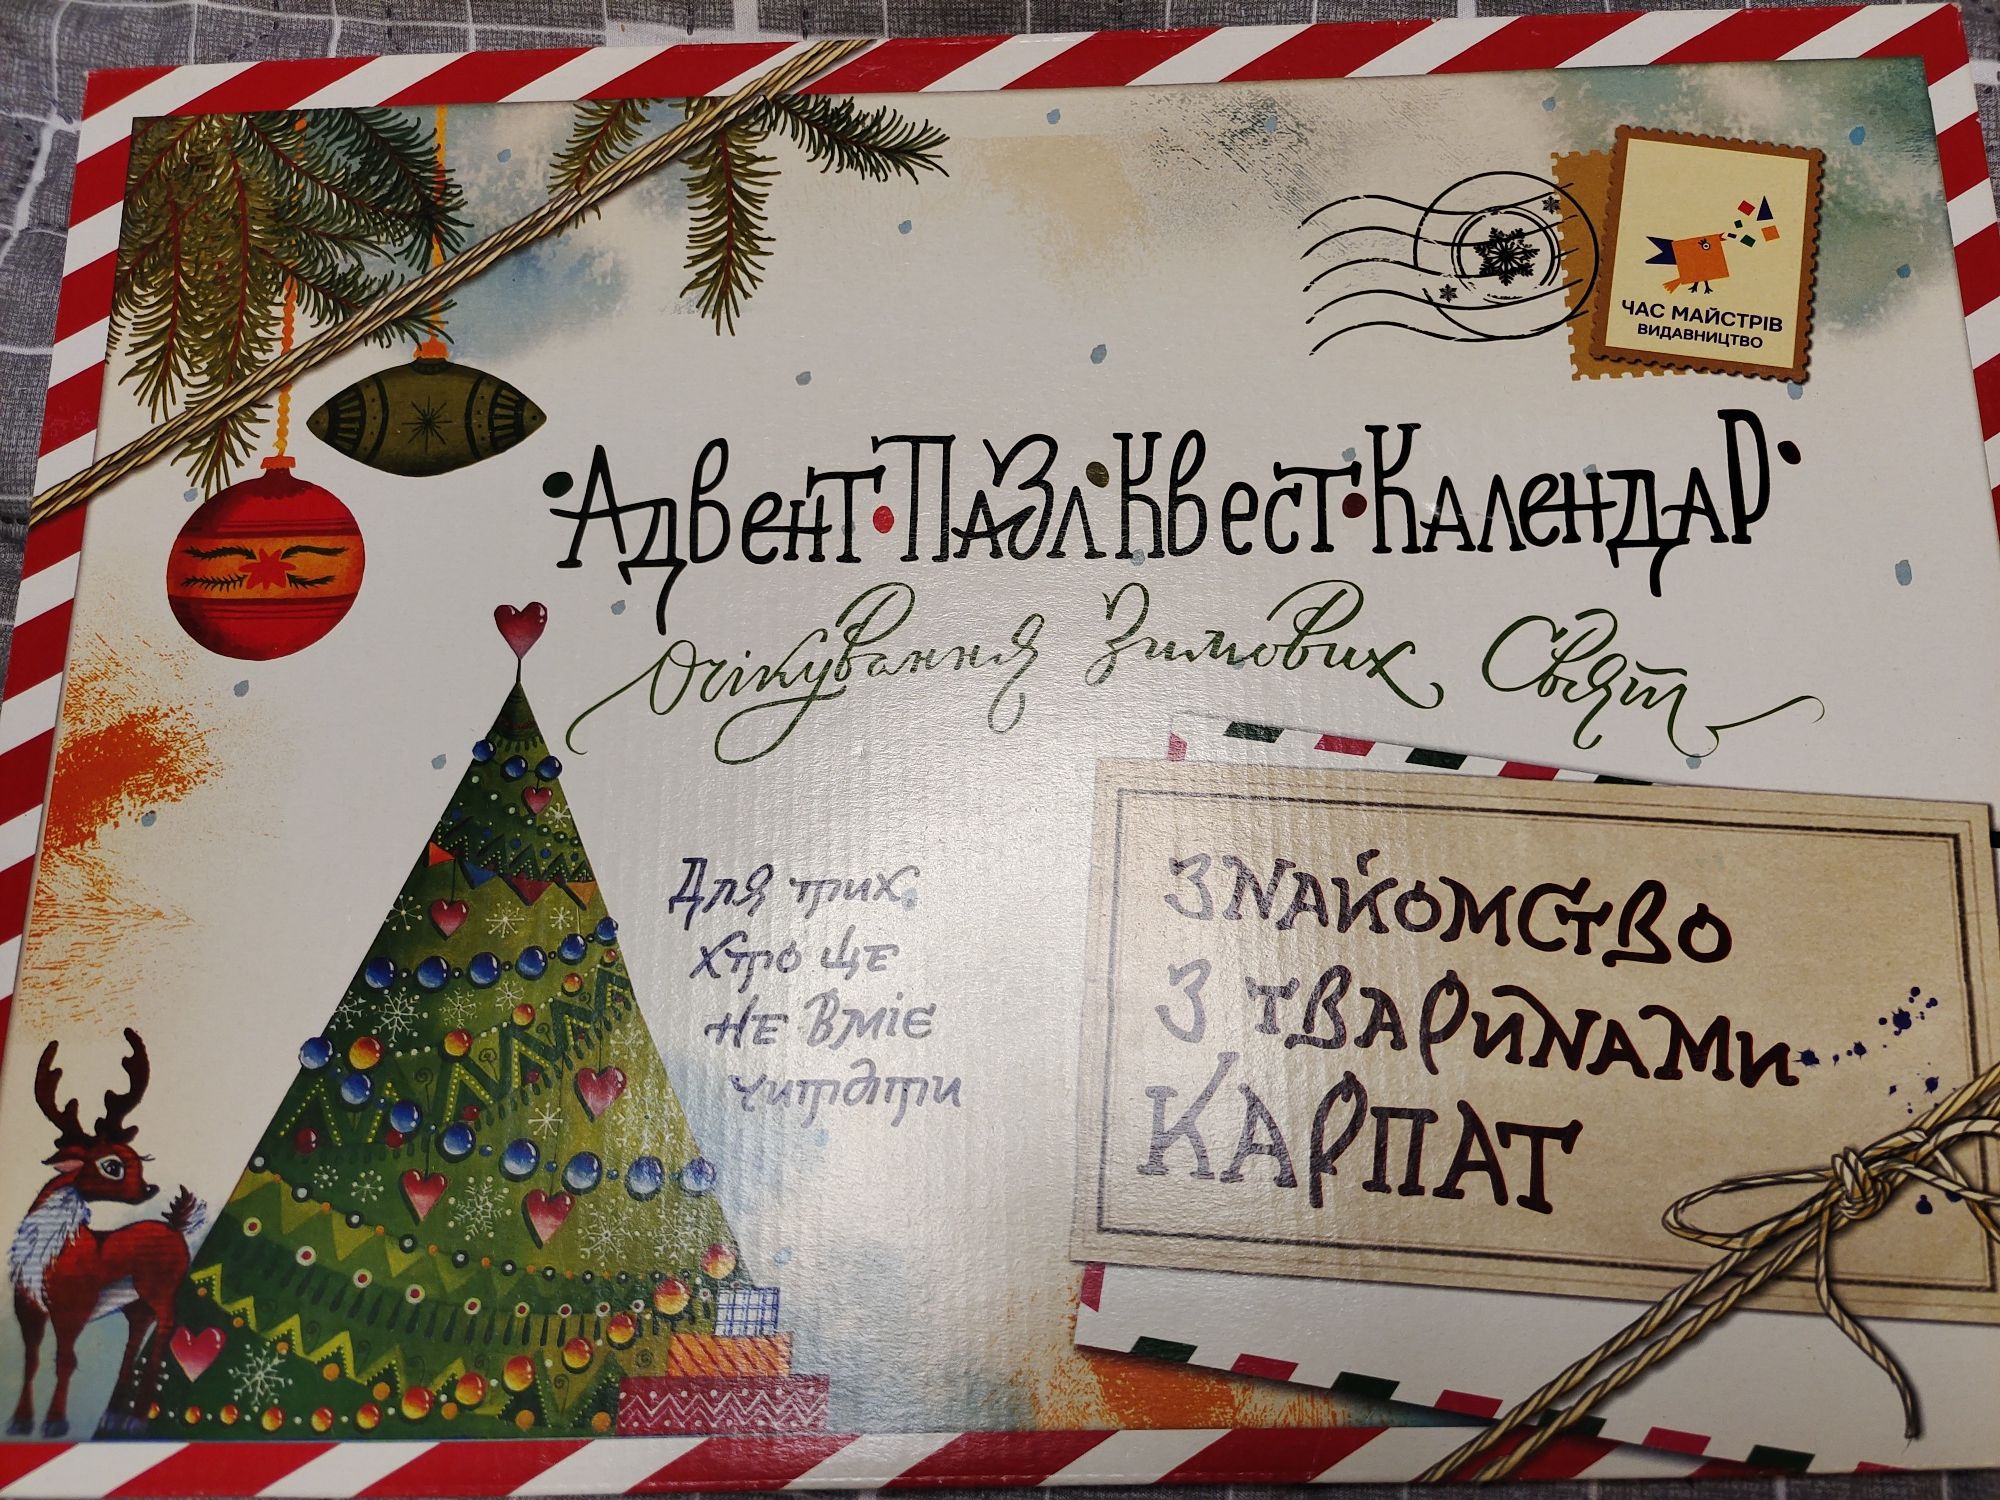 ЧАС МАЙСТРІВ
ВИДАВНИЦТВО
Адвент•Пазл•Квест•Календар
Очікування Зимових Свят
Для тих,
хто ще
не вміє
читати
Знайомство
з тваринами
Карпат